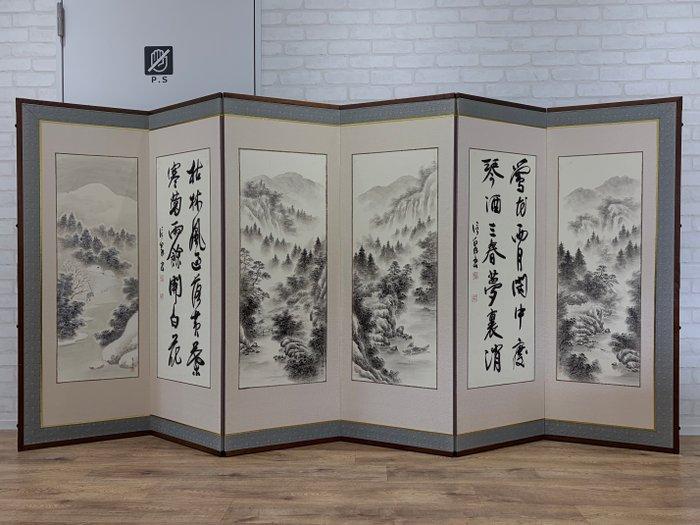 P.S
鶯花两月閑中度
琴酒三春夢裏消
枯林風過落黄葉
寒菊雨餘開白花